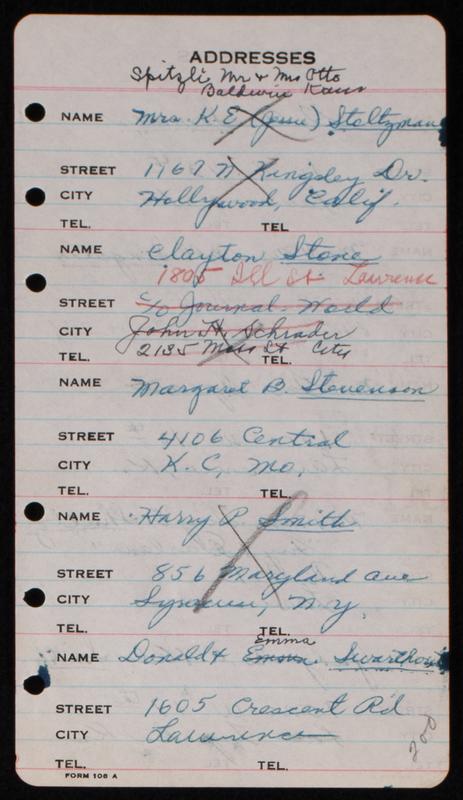 ADDRESSES
Spitzli, Mr & Mrs Otto
Baldwin Kans
NAME Mrs. K. E. (Jessie) Stoltzman
STREET 1767 N Kingsley Dr.
CITY Hollywood, Calif.
TEL. TEL
NAME Clayton Stone
1805 Ill St. Lawrence
STREET % Journal-World
CITY John H. Schrader
TEL. 2135 Mass St City TEL.
NAME Margaret B. Stevenson
STREET 4106 Central
CITY K. C, Mo.
TEL. TEL.
NAME Harry P. Smith
STREET 856 Maryland ave
CITY Syracuse, N. Y.
TEL. TEL.
Emma
NAME Donald & Swarthout
STREET 1605 Crescent Rd
CITY Lawrence
200
TEL. TEL.
FORM 106 A